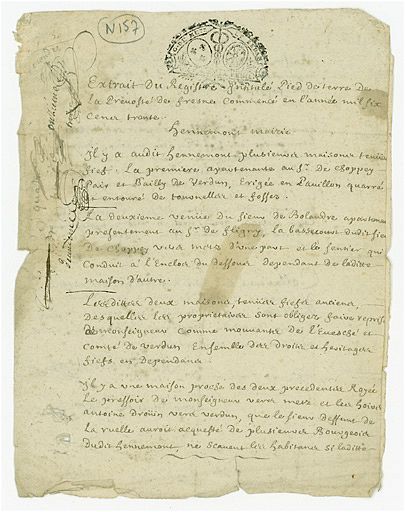 N 157
Extrait du Registre Intitulé Pied de terre de
la Prevosté de fresne Commencé en l'année mil six
Cens trente.
Hennemont mairie
Il y a audit hennemont plusieurs maisons tenües
fiefs. La premiere apartenante au Sr. de Choppey
Pair et Bailly de Verdun, Erigée en Pavillon quarré
entouré de tournelles et fossez.
La deuxieme venüe du sieur de Bolandre apartenan
presentement au Sr. de fligny, la bassecourt dudit fie
de Choppey vers metz d'une part et le sentier qui
conduit a l'Enclos du dessous dependant de ladite
maison d'autre.
Lesdittes deux maisons, tenües fiefs anciens,
desquelles les proprietaires sont obligez faire reprise
de monseigneur comme mouvantes de l'Evesché et
Comté de verdun Ensemble des droits et heritages
fiefs en dependans.
Il y a une maison proche des deux precedentes Royée
Le pressoir de monseigneur vers metz et les hoirs
antoine droüin vers verdun, que le sieur deffunt de
La ruelle auroit acquesté de plusieurs Bourgeois
dudit hennemont, ne scavent les habitans si laditte